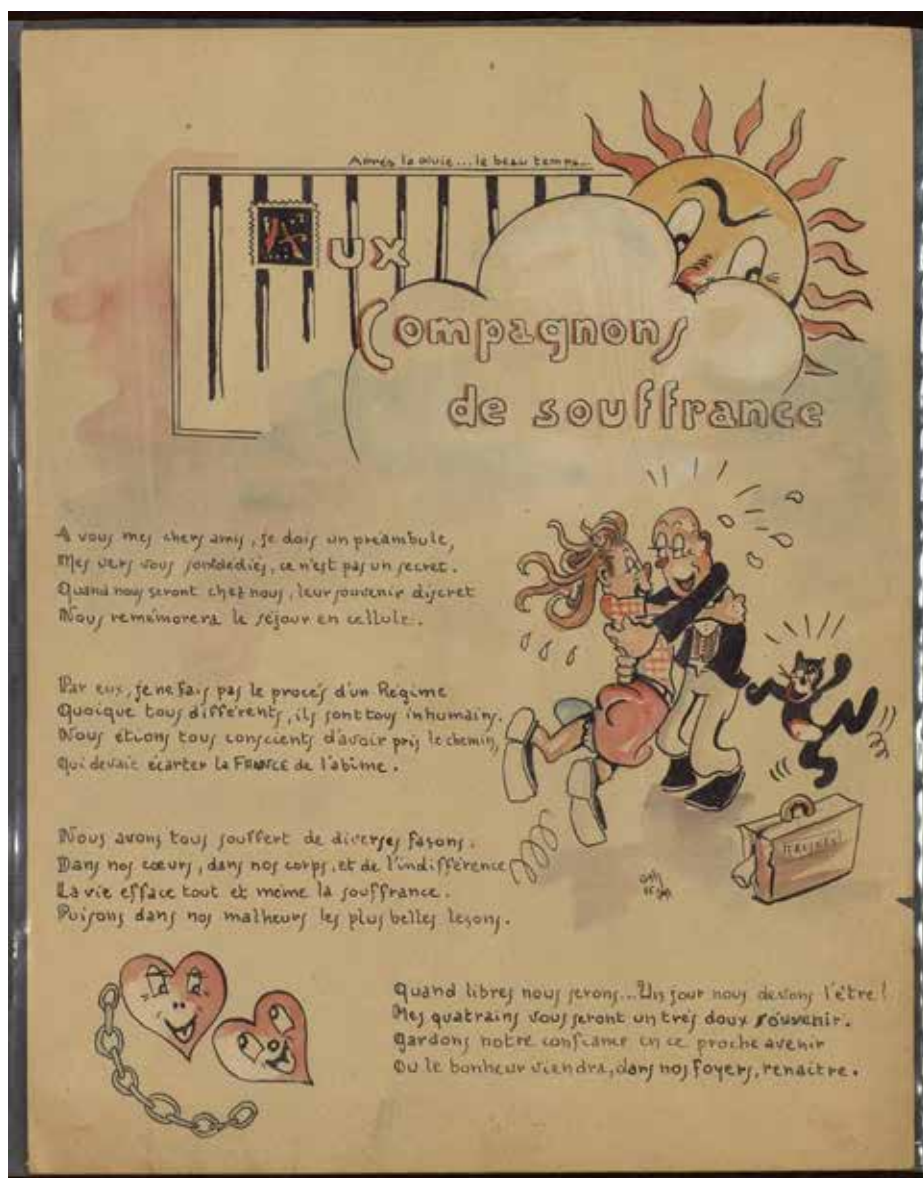 Après la pluie... le beau temps...
Aux
Compagnons
de souffrance
A vous mes chers amis, je dois un préambule,
Mes vers vous sont dédiés, ce n'est pas un secret.
Quand nous seront chez nous, leur souvenir discret
Nous remémorera le séjour en cellule.
Par eux, je ne fais pas le procés d'un Regime
Quoique tous différents, ils sont tous inhumains.
Nous étions tous conscients d'avoir pris le chemin,
Qui devait écarter la FRANCE de l'abime.
Nous avons tous souffert de diverses façons.
Dans nos cœurs, dans nos corps, et de l'indifférence
La vie efface tout et même la souffrance.
Puisons dans nos malheurs les plus belles leçons.
Quand libres nous serons... Un jour nous devons l'être !
Mes quatrains vous seront un très doux souvenir.
Gardons notre confiance en ce proche avenir
Ou le bonheur viendra, dans nos foyers, renaitre.